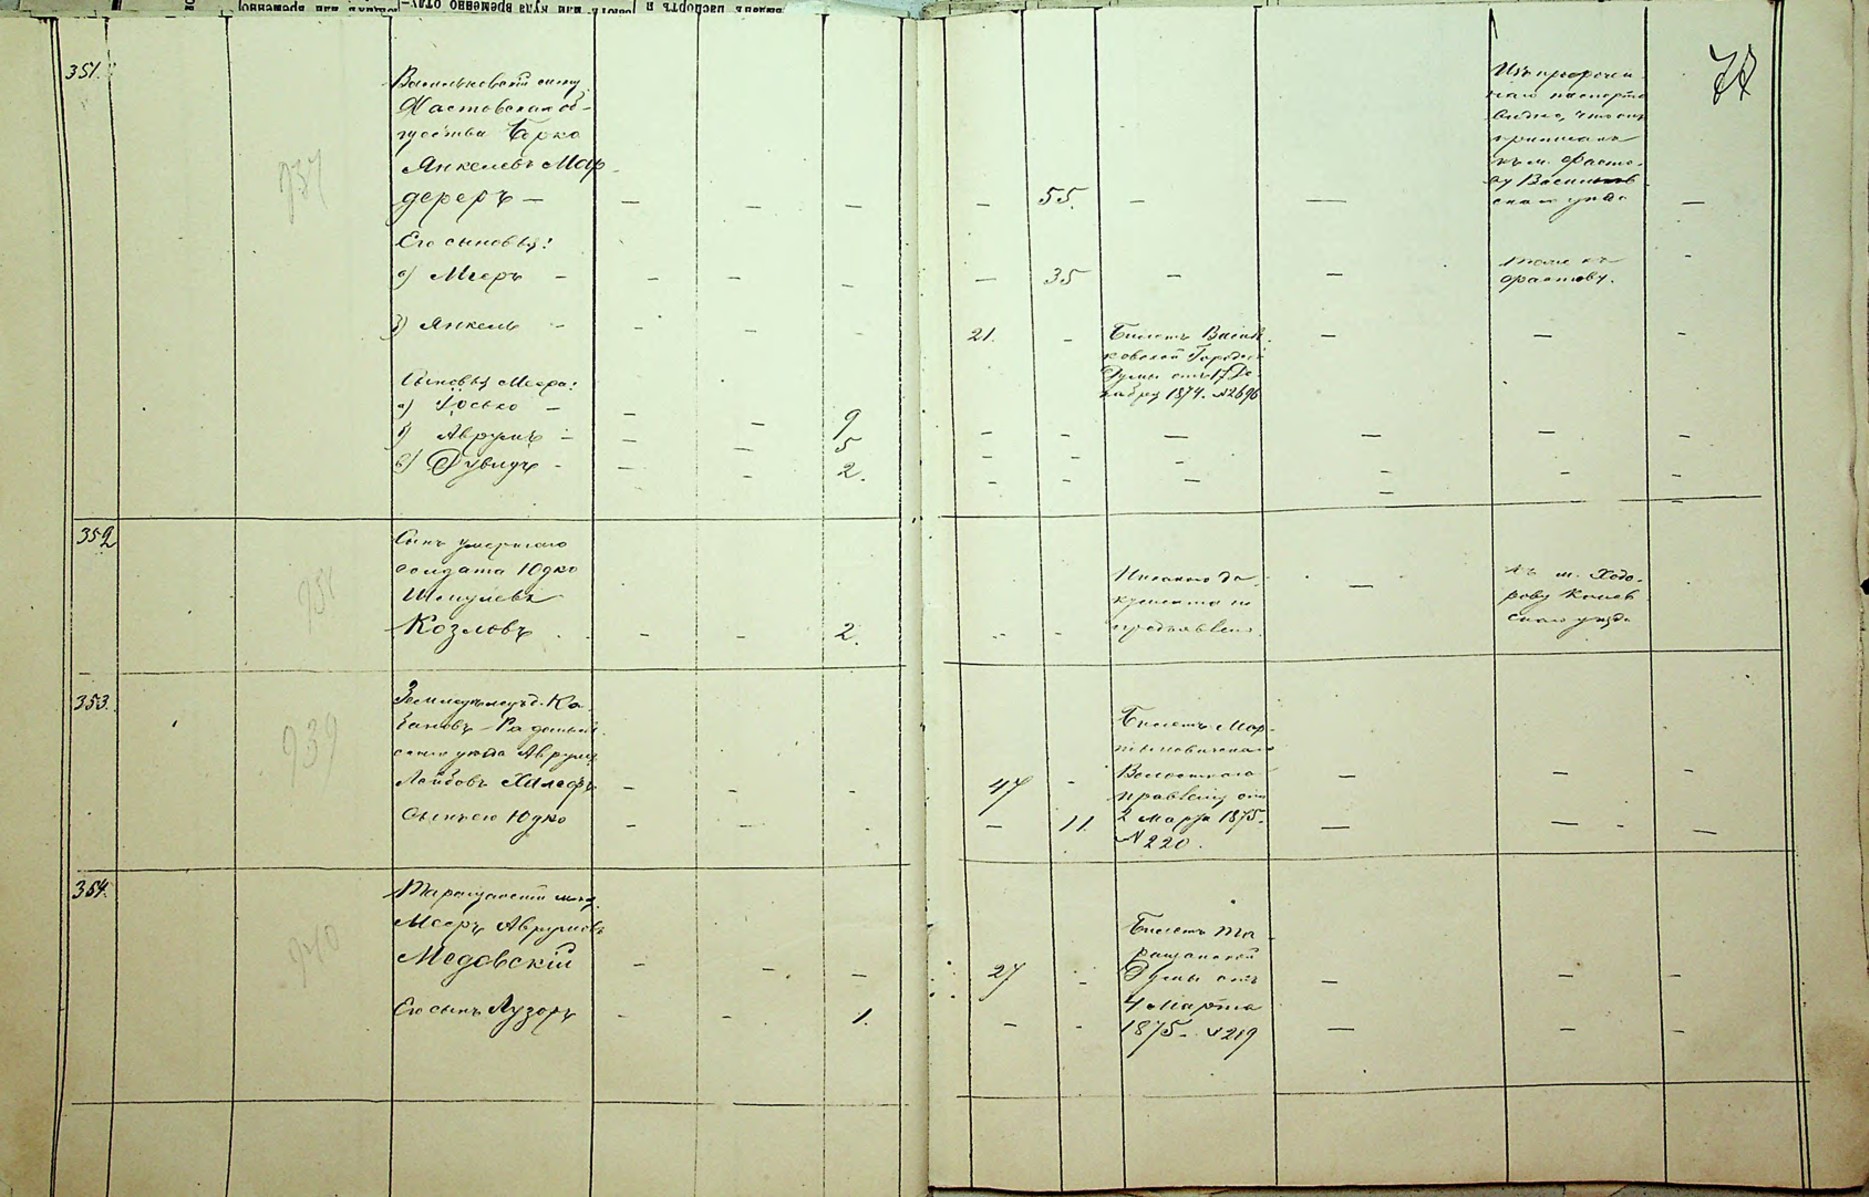 351.
937
Васильковскій мещ.
Фастовскаго об-
щества Борко
Янкелевъ Мар
дереръ —
55.
Изъ просрочен
наго паспорта
видно, что онъ
приписанъ
къ м. Фасто-
ву Васильков
скаго уезда
Его сыновья:
а) Мееръ —
35
тоже къ
Фастову.
б) Янкель —
21.
Билетъ Василь
ковской Городской
Думы отъ 17 Де
кабря 1874. № 2696
Сыновья Меера:
а) Іосько — 9
б) Аврумъ — 5
в) Дувидъ - 2.
78
352
938
Сынъ умершаго
солдата Юдко
Шмулевъ
Козловъ 2.
Никакого до
кумента не
предъявлено.
къ м. Ходо-
рову Каневскаго уезда
353.
939
Земледелецъ д. Ка
зановъ - Радомысль
скаго уезда Аврумъ
Лейбовъ
47
Билетъ Мар
тыновичскаго
Волостнаго
правленія отъ
2 Марта 1875.
№ 220.
Сынъ его Юдко
11.
354.
940
Таращанскій мещ.
Мееръ Аврумовъ
Медовскій
27
Билетъ Та
ращанской
Думы отъ
4 Марта
1875. № 219
Его сынъ Лузоръ 1.